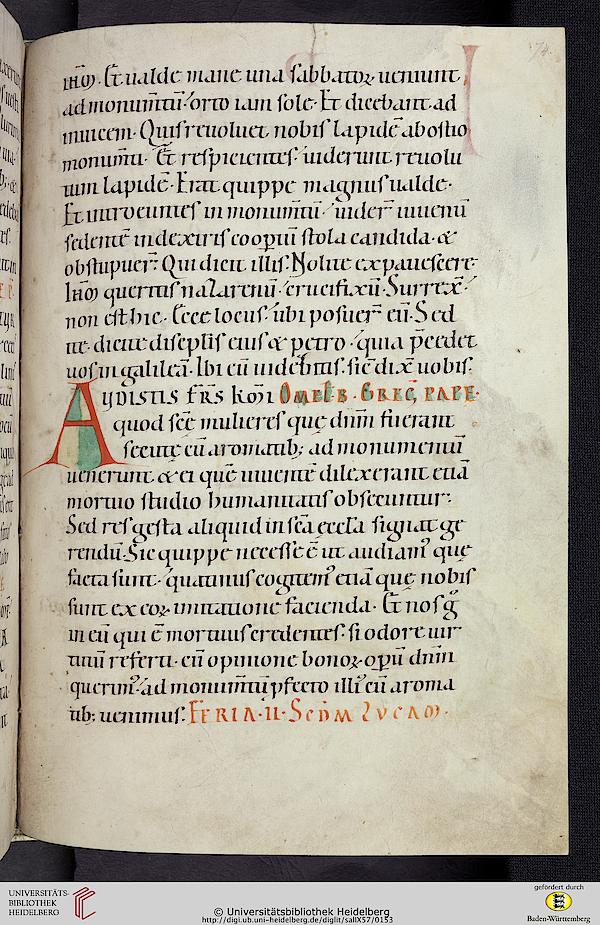 ihm̄. Et ualde mane una sabbatoꝝ ueniunt
ad monum̄tū orto iam sole. Et dicebant ad
inuicem. Quis reuoluet nobis lapidē ab ostio
monum̄ti. Et respicientes uiderunt reuolu
tum lapidē. Erat quippe magnus ualde.
Et introeuntes in monum̄tū uider̄ iuuenū
sedentē in dextris coopꝑtū stola candida. &
obstupuer̄. Qui dicit illis. Nolite expauescere.
Ihm̄ queritis nazarenū crucifixū. Surrex̄
non est hic. Ecce locus ubi posuer̄ eū. Sed
ite. dicite discip̄lis eius & petro quia p̄cedet
uos in galileā. Ibi eū uidebitis. sic̄ dix̄ uobis.
Audistis fr̄s km̄i Omel b. Greg̅. pape.
quod sc̄e mulieres quę dn̄m fuerant
secutę cū aromatib; ad monumentū
uenerunt. & ei quē uiuentē dilexerant etiā
mortuo studio humanitatis obsecuntur.
Sed res gesta aliquid in sc̄a eccl̄a signat ge
rendū. Sic quippe necesse ē ut audiam᾽ quę
facta sunt. quatinus cogitem᾽ etiā quę nobis
sunt ex eoꝝ imitatione facienda. Et nos g̊
in eū qui ē mortuus credentes. si odore uir
tutū referti. cū opinione bonoꝝ oꝑū dn̄m
querim᾽ ad monum̄tū ꝓfecto illi᾽ cū aroma
tib; uenimus. Feria. II. Scd̄m Lucam.
UNIVERSITÄTS-
BIBLIOTHEK
HEIDELBERG
© Universitätsbibliothek Heidelberg
http://digi.ub.uni-heidelberg.de/diglit/salIX57/0153
gefördert durch
Baden-Württemberg